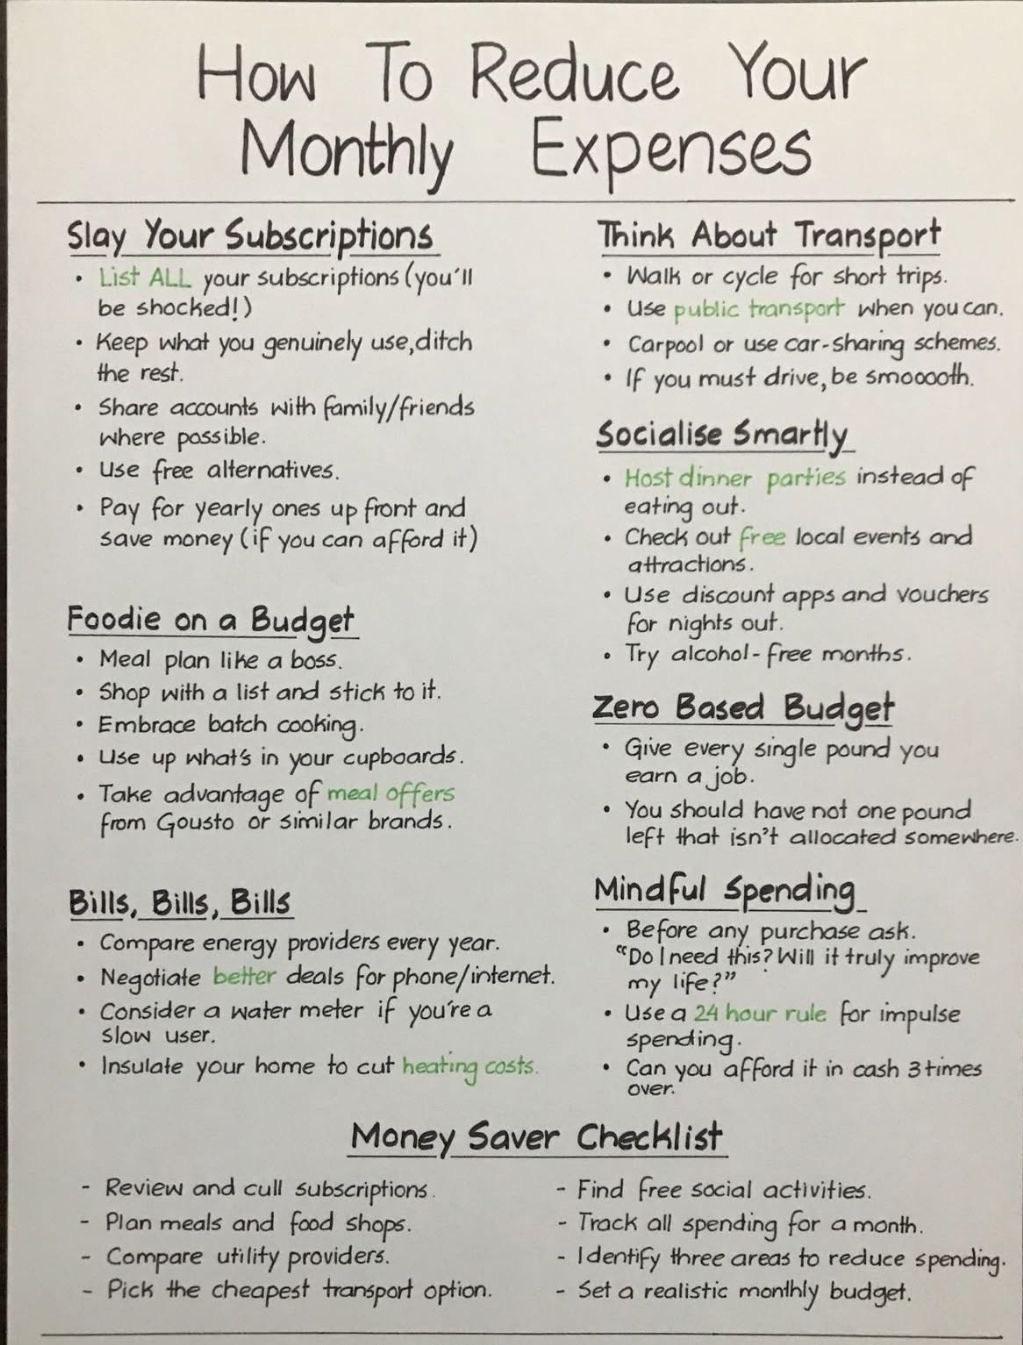 How To Reduce Your
Monthly Expenses
Slay Your Subscriptions
• List ALL your subscriptions (you'll
be shocked!)
• Keep what you genuinely use, ditch
the rest.
• Share accounts with family/friends
where possible.
• Use free alternatives.
• Pay for yearly ones up front and
save money (if you can afford it)
Foodie on a Budget
• Meal plan like a boss.
• Shop with a list and stick to it.
• Embrace batch cooking.
• Use up what's in your cupboards.
• Take advantage of meal offers
from Gousto or similar brands.
Bills, Bills, Bills
• Compare energy providers every year.
• Negotiate better deals for phone/internet.
• Consider a water meter if you're a
slow user.
• Insulate your home to cut heating costs.
Think About Transport
• Walk or cycle for short trips.
• Use public transport when you can.
• Carpool or use car-sharing schemes.
• If you must drive, be smooooth.
Socialise Smartly
• Host dinner parties instead of
eating out.
• Check out free local events and
attractions.
• Use discount apps and vouchers
for nights out.
• Try alcohol-free months.
Zero Based Budget
• Give every single pound you
earn a job.
• You should have not one pound
left that isn't allocated somewhere.
Mindful Spending
• Before any purchase ask.
"Do I need this? Will it truly improve
my life?"
• Use a 24 hour rule for impulse
spending.
• Can you afford it in cash 3 times
over.
Money Saver Checklist
- Review and cull subscriptions.
- Plan meals and food shops.
- Compare utility providers.
- Pick the cheapest transport option.
- Find free social activities.
- Track all spending for a month.
- Identify three areas to reduce spending.
- Set a realistic monthly budget.